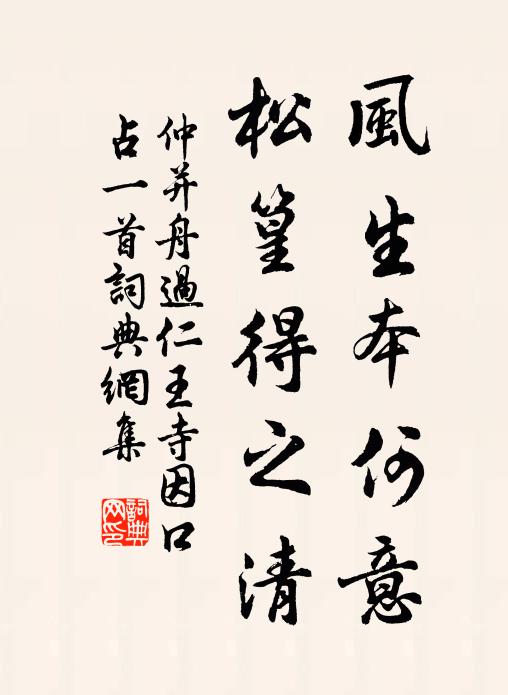 風生本何意
松篁得之清
仲并舟過仁王寺因口
占一首詞典網集
詞典網印